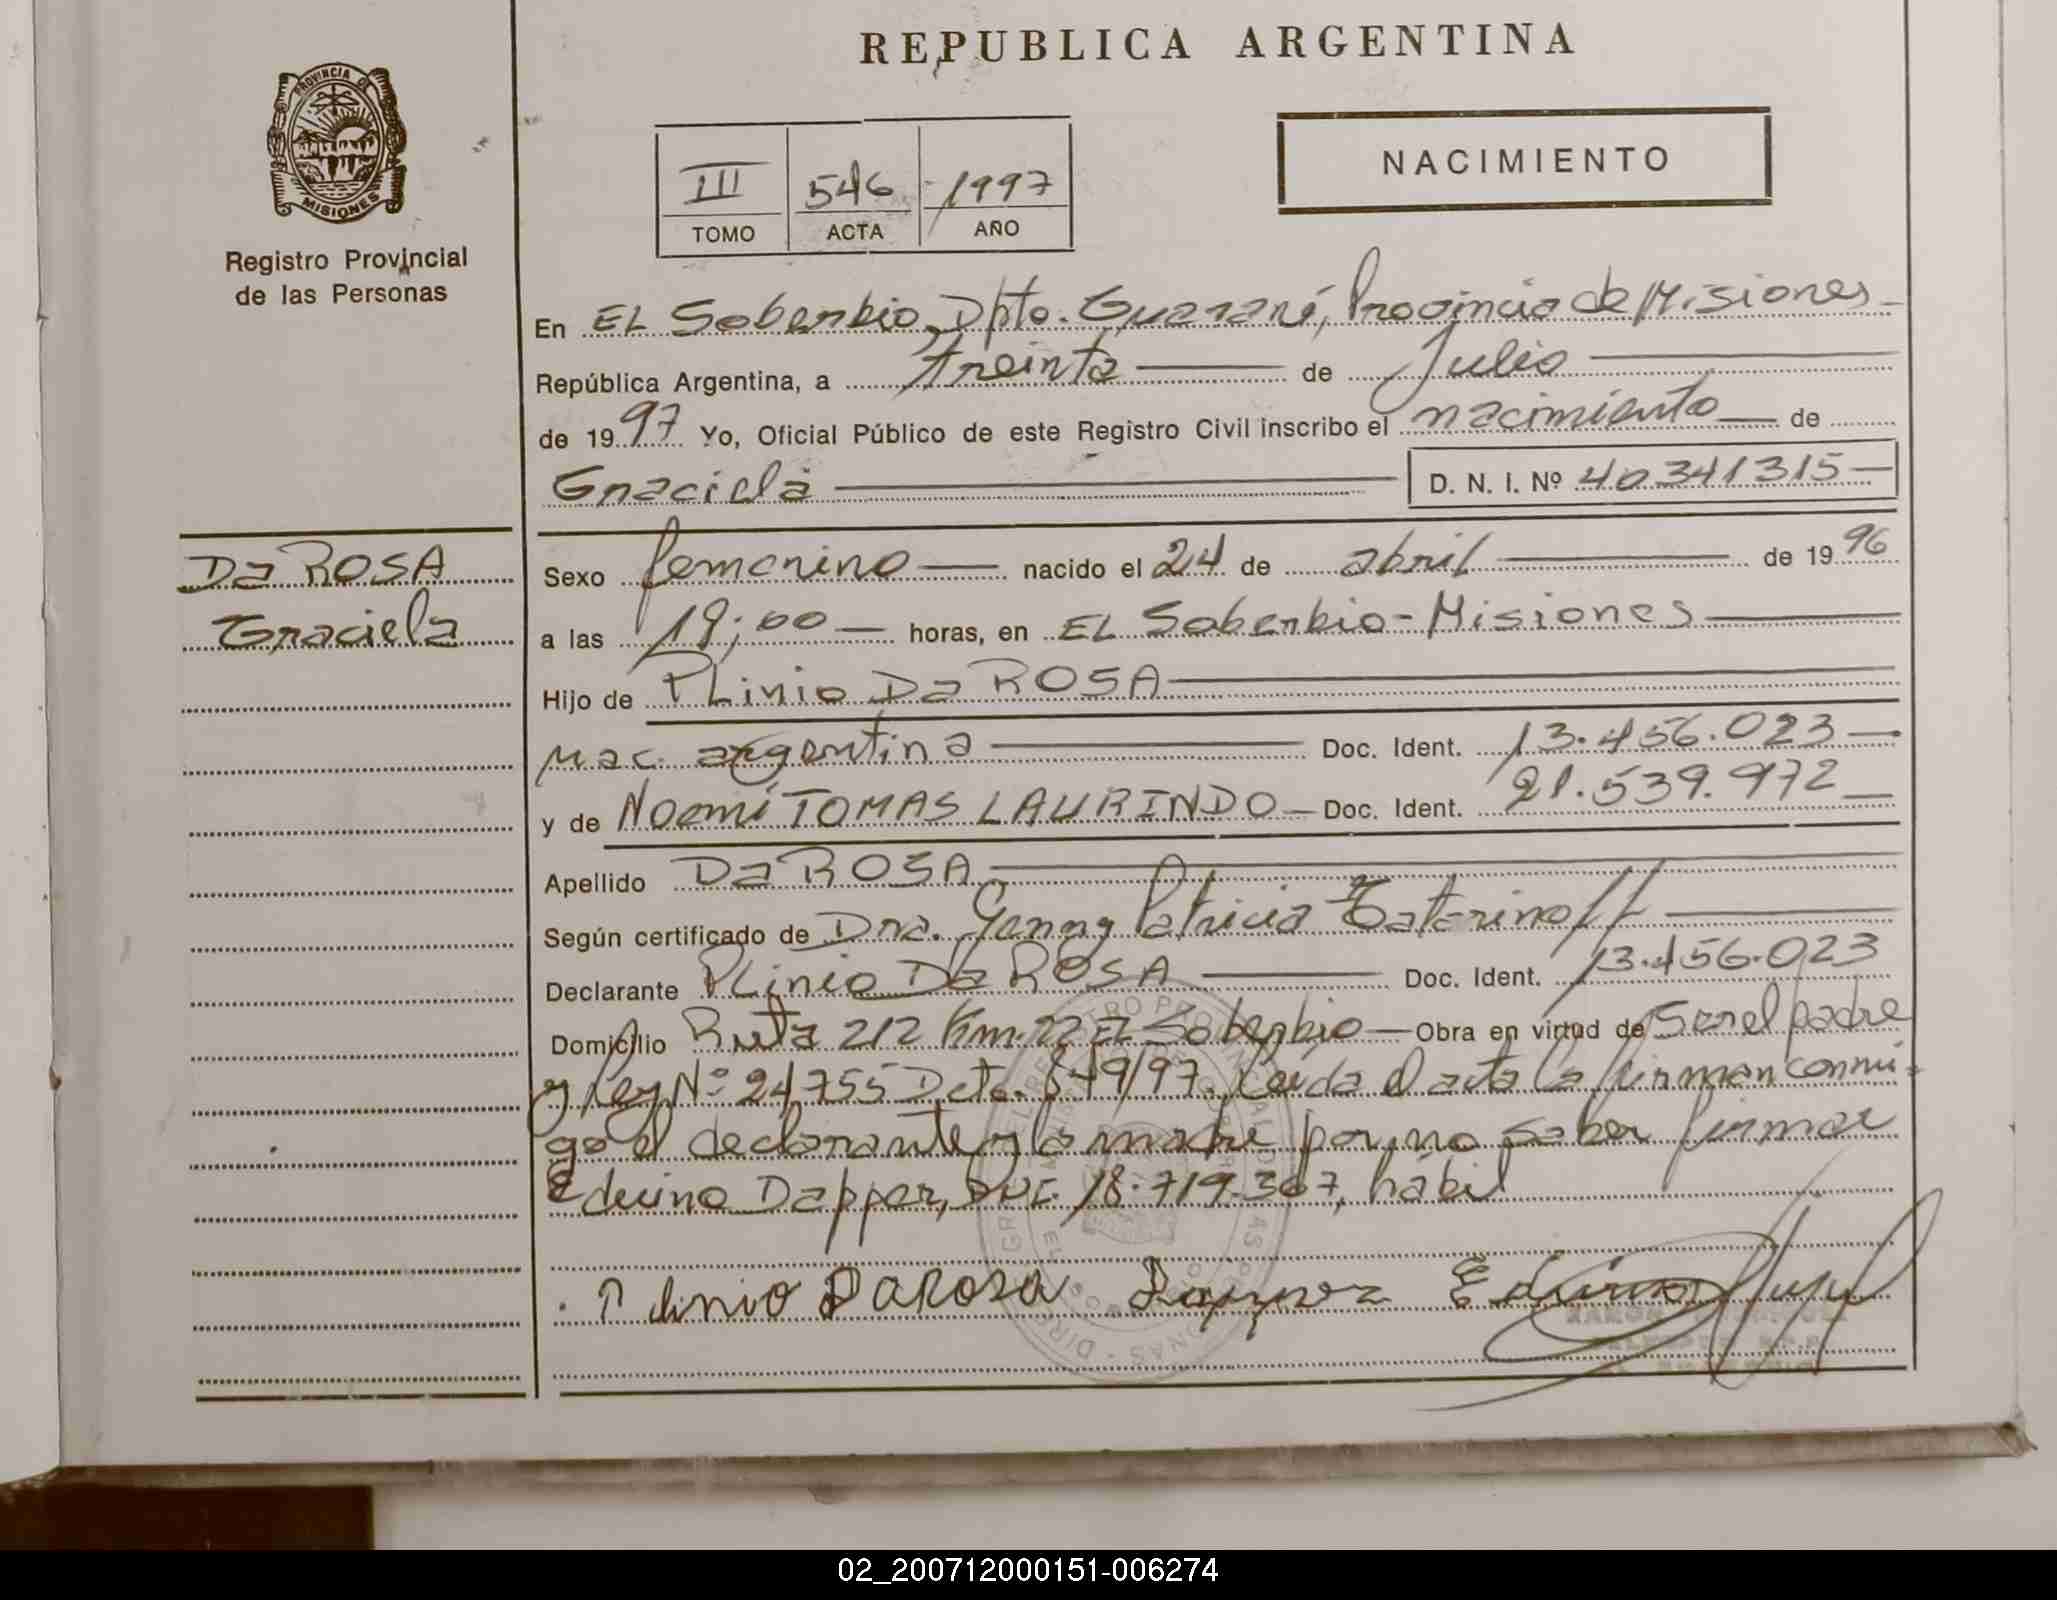 REPUBLICA ARGENTINA
PROVINCIA DE
MISIONES
Registro Provincial
de las Personas
NACIMIENTO
III 546 1997
TOMO ACTA AÑO
En EL Soberbio, Dpto. Guaraní, Provincia de Misiones
República Argentina, a treinta de Julio
de 1997 Yo, Oficial Público de este Registro Civil inscribo el nacimiento de
Graciela D. N. I. Nº 40341315
DA ROSA
Graciela
Sexo femenino nacido el 24 de abril de 1996
a las 19;00 horas, en EL Soberbio - Misiones
Hijo de PLinio Da ROSA
Nac. argentina Doc. Ident. 13.456.023
y de Noemí TOMAS LAURINDO Doc. Ident. 21.539.972
Apellido Da ROSA
Según certificado de Dra. Genny Patricia Tatarinoff
Declarante PLinio Da ROSA Doc. Ident. 13.456.023
Domicilio Ruta 212 Km. 22 EL Soberbio Obra en virtud de Ser el padre
y Ley Nº 24755 Dcto. 849/97. Leída el acta la firman conmi-
go el declarante y la madre por no saber firmar
Eduino Dapper, 18.719.367, hábil
Plinio DAROSA Eduino
02_200712000151-006274